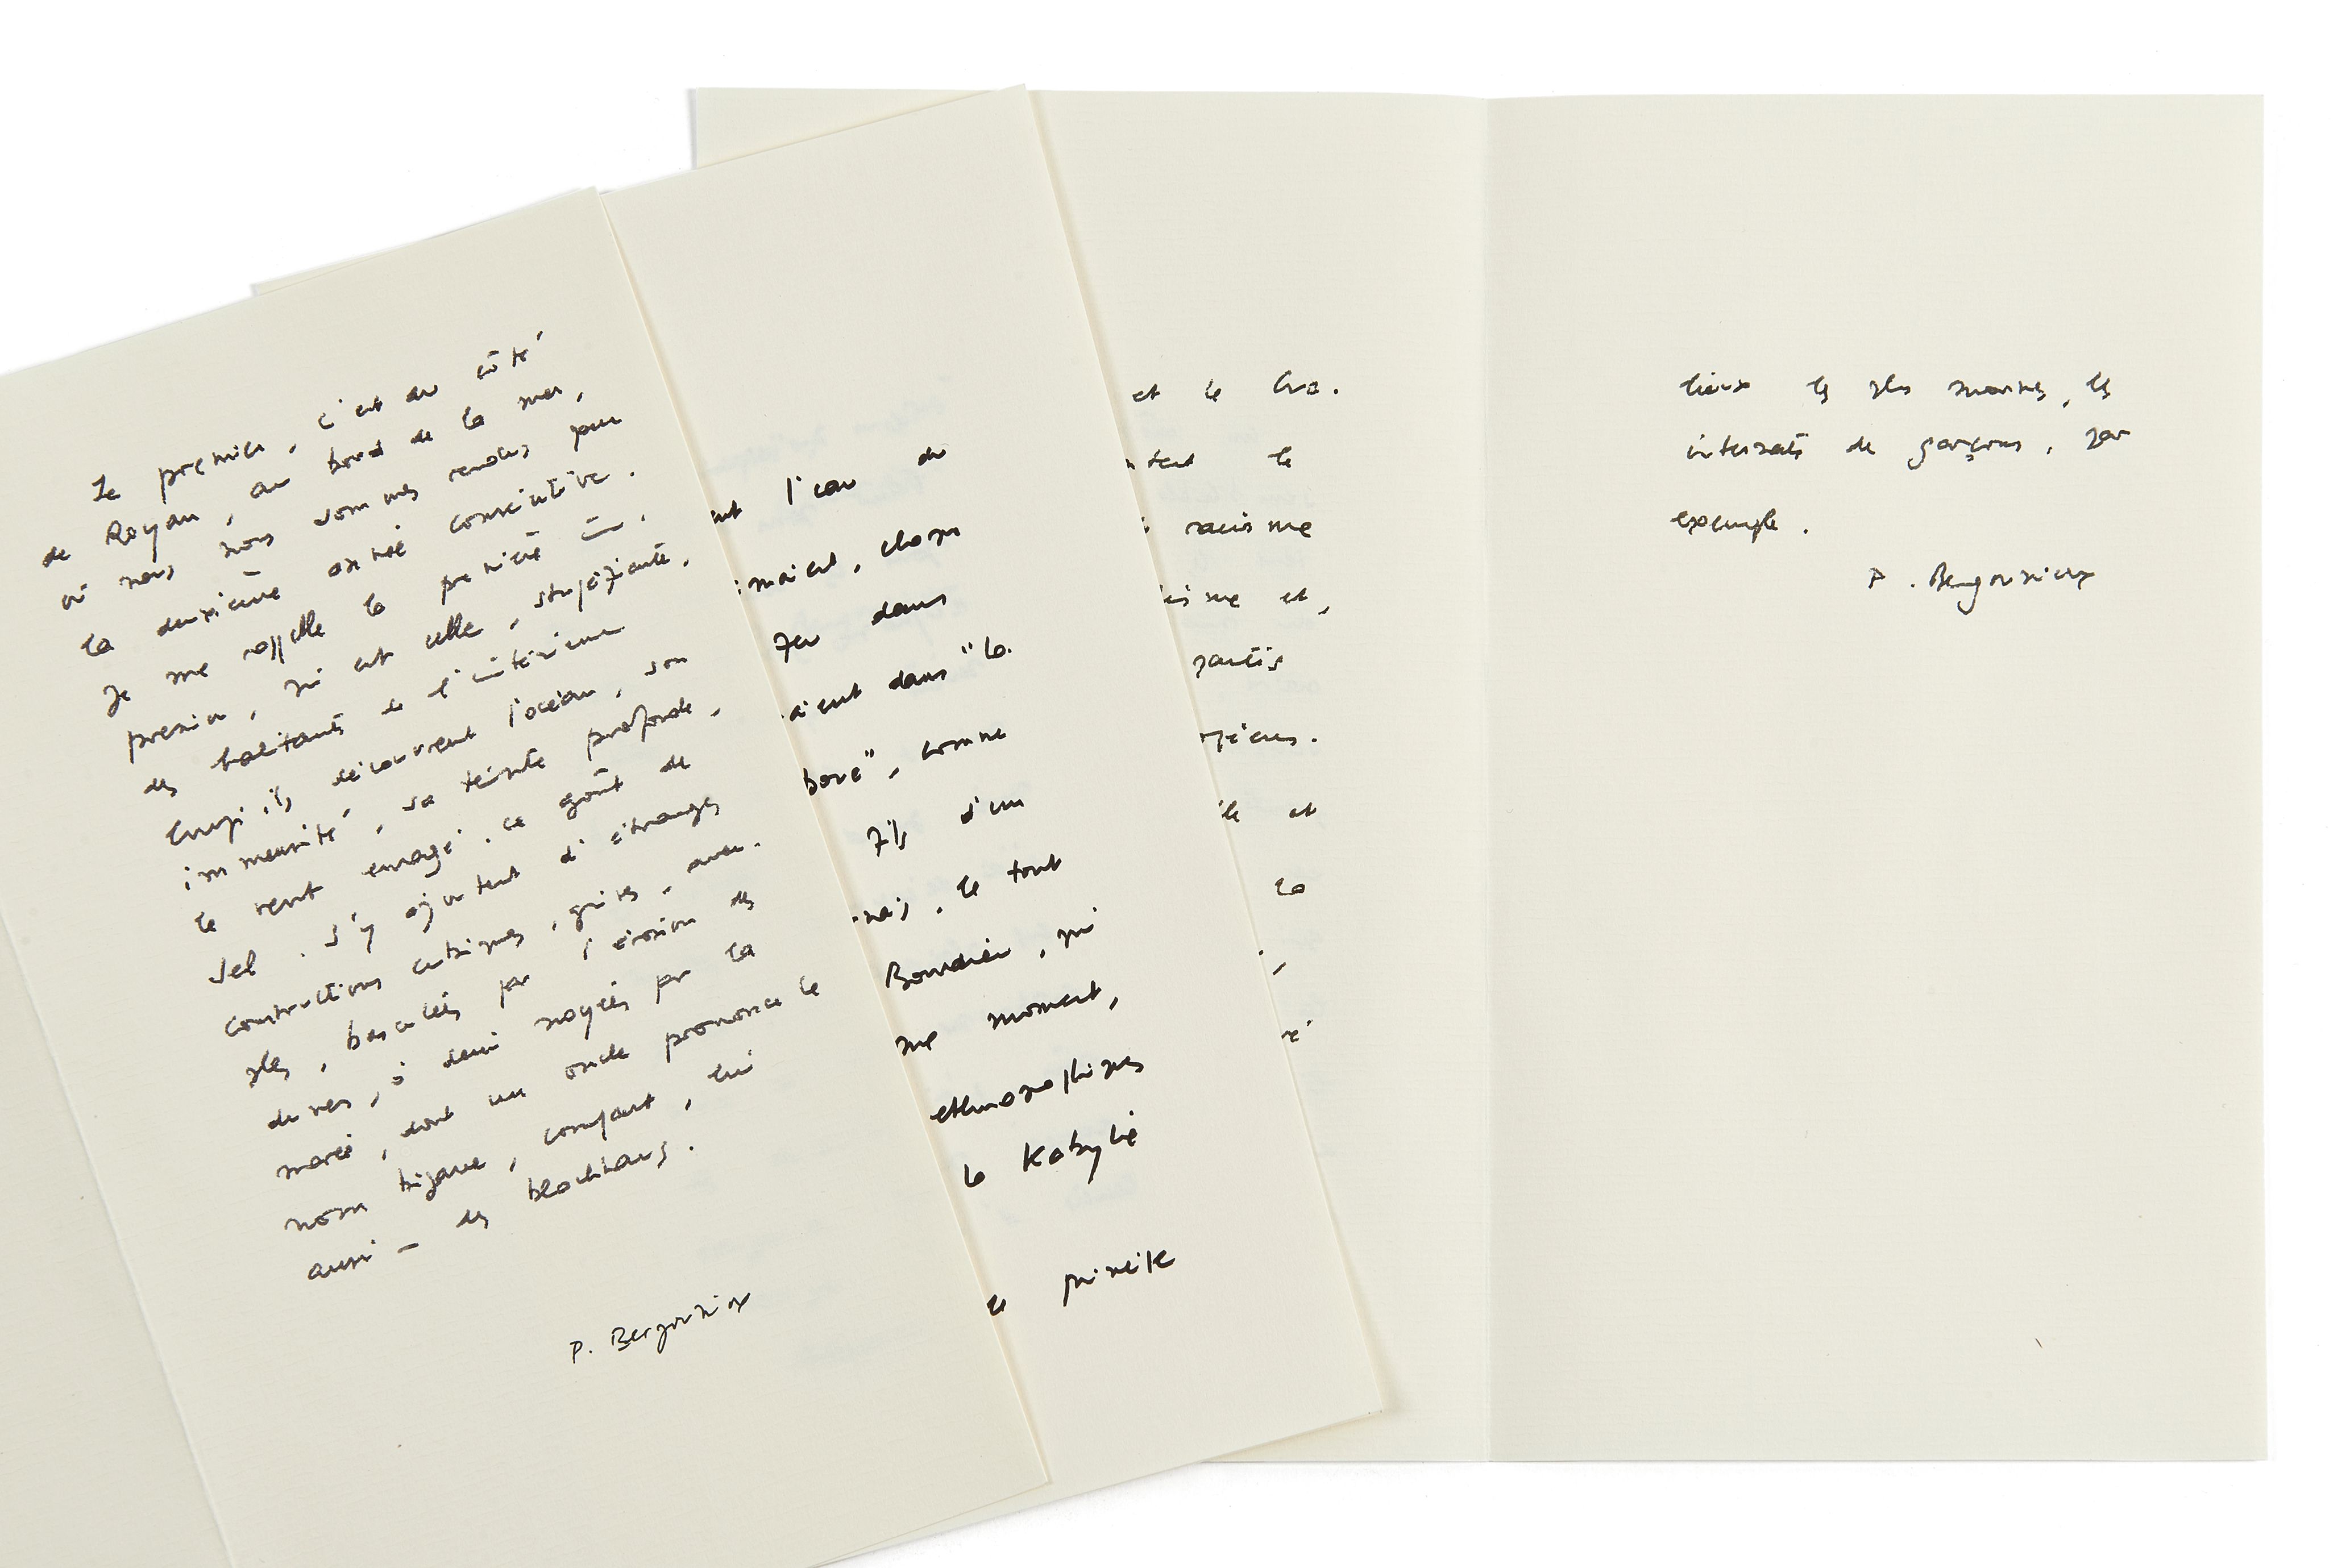 Le premier, c'est du côté
de Royan, au bord de la mer,
où nous nous sommes rendus pour
la deuxième année consécutive.
Je me rappelle la première
qui est celle, stupéfiante,
des habitants de l'intérieur
lorsqu'ils découvrent l'océan, son
immensité, sa teinte profonde,
le vent enragé, ce goût de
sel. S'y ajoutent d'étranges
constructions cubiques, grises, aveu-
gles, basculées par l'érosion des
dunes, à demi noyées par la
marée, dont un oncle prononce le
nom bizarre, coupant, lui
aussi — des blockhaus.
P. Bergounioux
l'eau du
dans
aient dans "la
boue", comme
fils d'un
le tout
Bourdieu, qui
me moment,
ethnographiques
la Kabylie
et le
le
racisme
isme et,
partis
et
la
lieux les plus mornes, les
internats de garçons, par
exemple.
P. Bergounioux